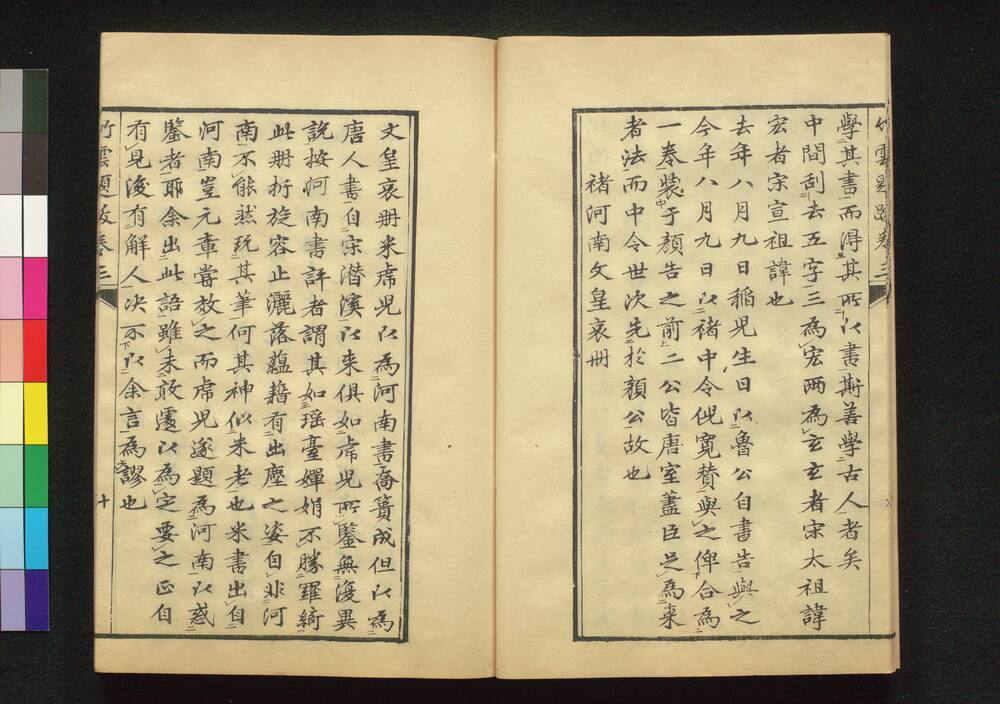 竹雲題跋卷三
學其書而得其所以書斯善學古人者矣
中間刮去五字三為宏兩為玄玄者宋太祖諱
宏者宋宣祖諱也
去年八月九日稻児生日以魯公自書告與之
今年八月九日以褚中令倪寬賛與之俾合為
一奏裝于顏告之前二公皆唐室藎臣足為来
者法而中令世次先於顏公故也
褚河南文皇哀册
文皇哀册米虎児以為河南書裔簀成但以為
唐人書自宋潜溪以来俱如虎児所鑒無復異
說按河南書評者謂其如瑶臺嬋娟不勝羅綺
此册折旋容止灑落蘊藉有出塵之姿自非河
南不能然玩其筆何其神似米老也米書出自
河南豈元章嘗教之而虎児遂題為河南以惑
鑒者耶余出此語雖未敢遽以為定要之正自
有見後有解人决不以余言為謬也
竹雲題跋卷三
十